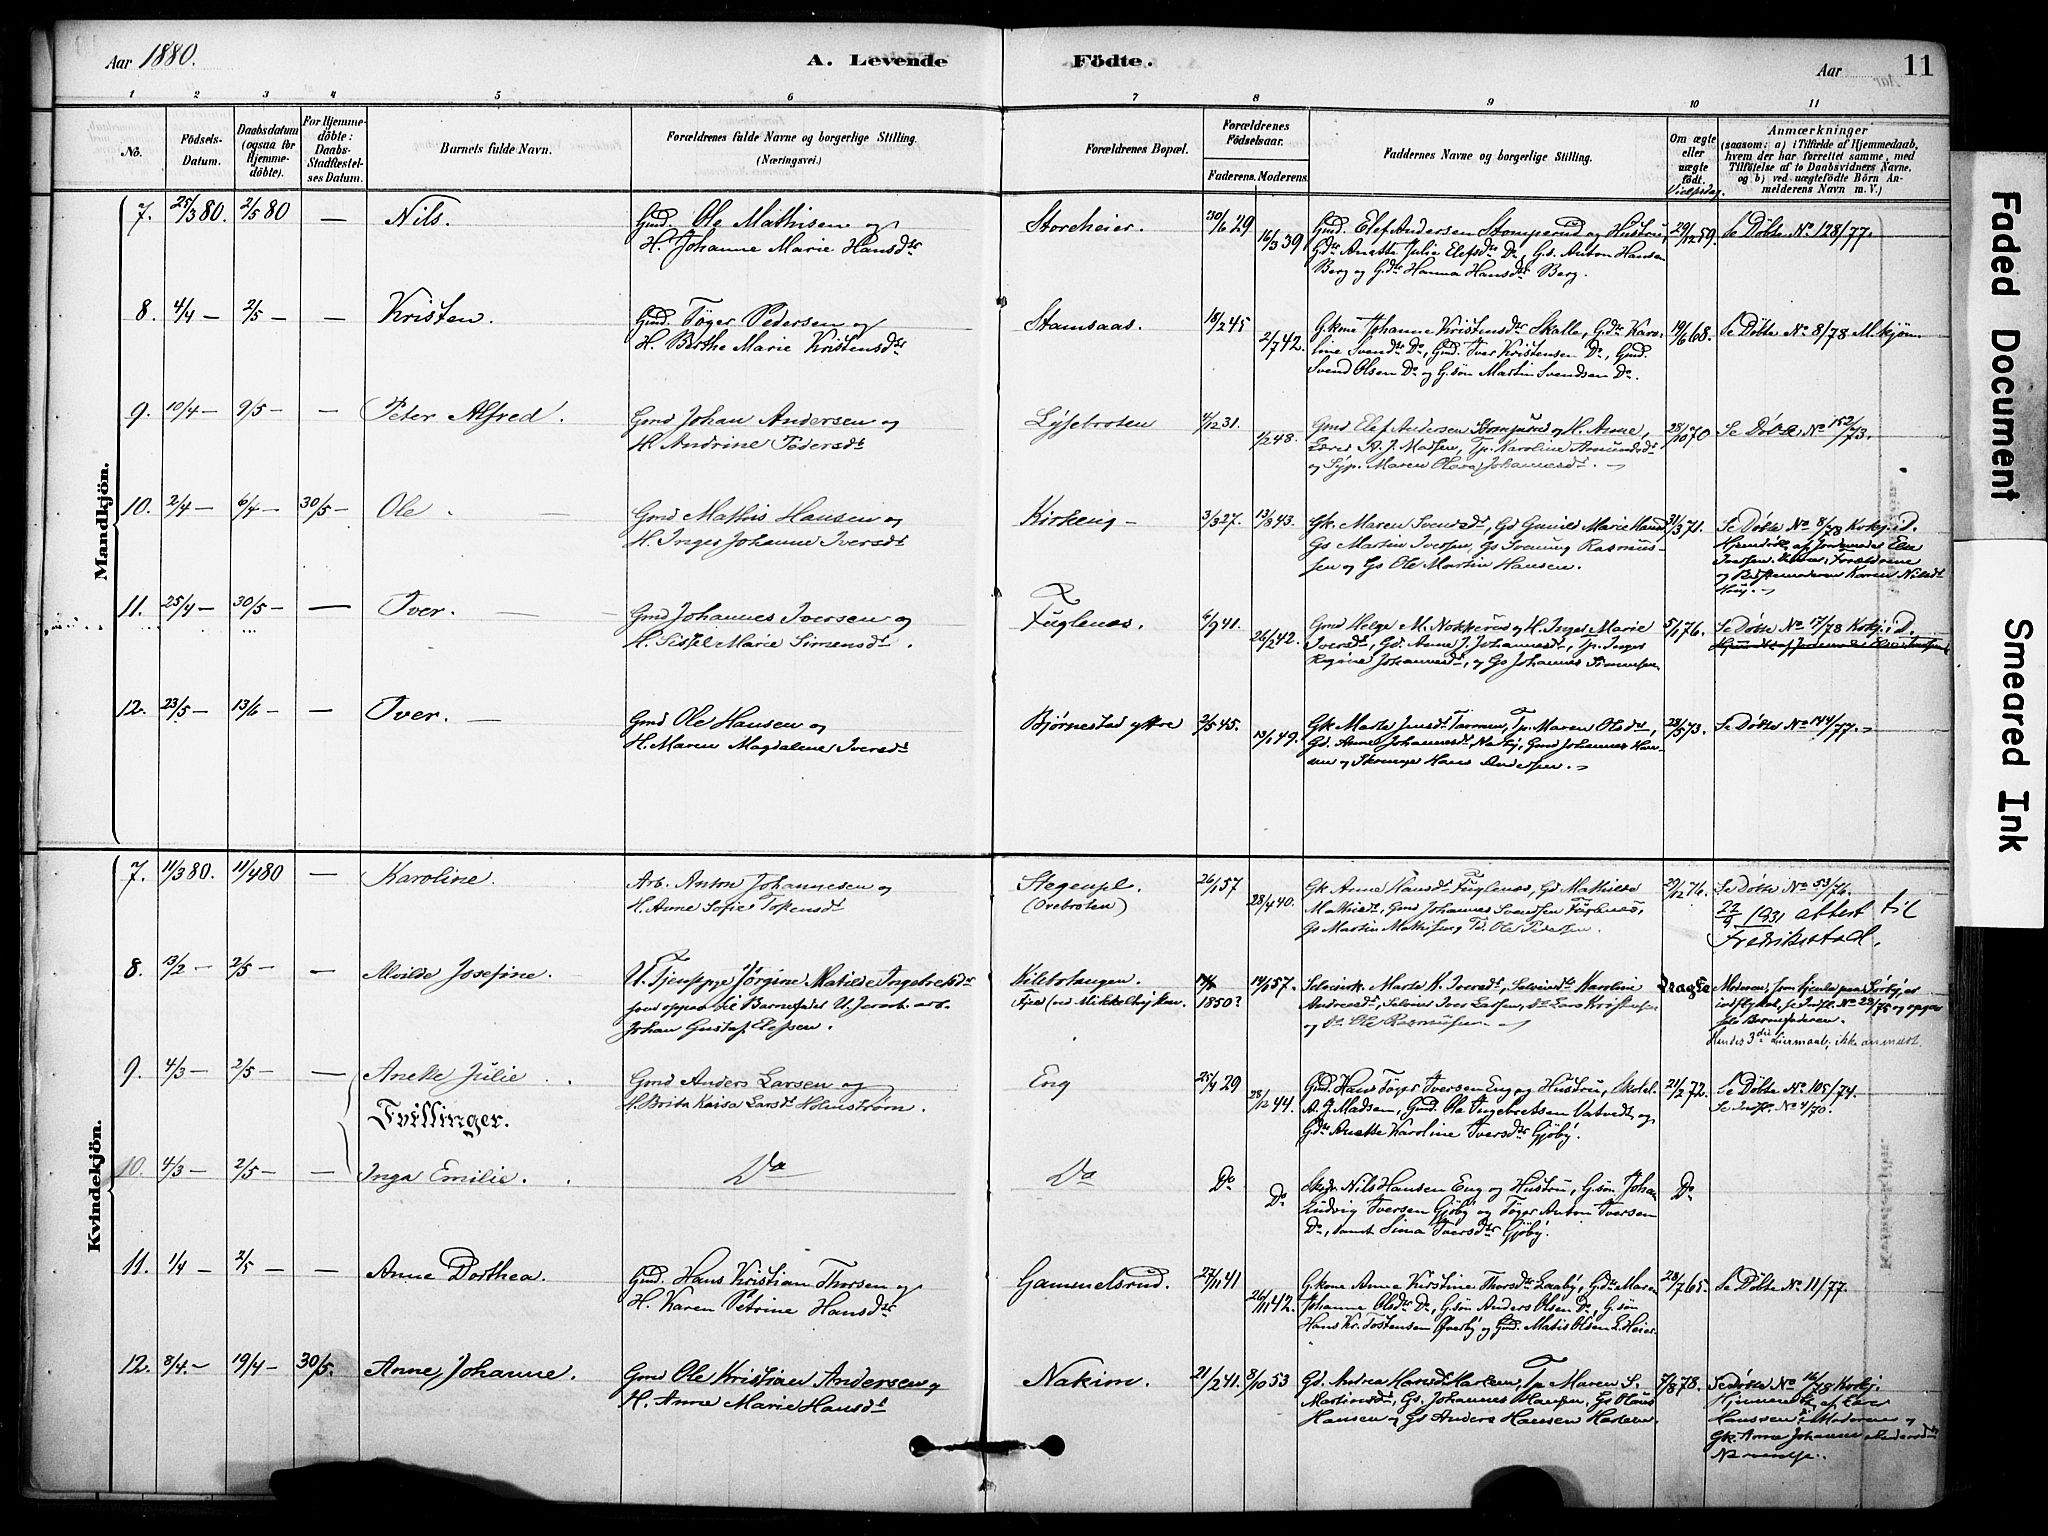 Aar 1880.
A. Levende Födte.
Aar
11
1 2 3 4 5 6 7 8 9 10 11
No.
Födsels-
Datum.
Daabsdatum
(ogsaa for
Hjemme-
döbte).
For Hjemme-
döbte:
Daabs-
Stadfæstel-
ses Datum.
Barnets fulde Navn.
Forældrenes fulde Navne og borgerlige Stilling.
(Næringsvei.)
Forældrenes Bopæl.
Forældrenes
Födselsaar.
Faderens. Moderens.
Faddernes Navne og borgerlige Stilling.
Om ægte
eller
uægte
født.
Vielsesdag.
Anmærkninger
(saasom: a) i Tilfælde af Hjemmedaab,
hvem der har forrettet samme, med
Tilföielse af to Daabsvidners Navne.
og b) ved uægtefödte Börn An-
melderens Navn m. V.)
Mandkjön.
7. 25/3 80. 2/5 80 — Nils.
Gmd. Ole Mathisen og
H. Johanne Marie Hansdtr
Storeheier. 29 16/3 39
Gmd. Elef Andersen Stomperud og Hustru,
Gdtr Anette Julie Elefsdtr Do, G.s. Anton Hansen
Berg og Gdtr Hanna Hansdtr Berg.
29/12 59. Se Döbte No 128/77.
8. 4/4 — 2/5 — — Kristen.
Gmd. Töger Pedersen og
H. Berthe Marie Kristensdtr
Stamsaas. 18/2 45 2/7 42.
Gkone Johanne Kristensdtr Skalle, Gdtr Karo-
line Svendsdtr Do, Gmd. Iver Kristensen Do, Gmd.
Svend Olsen Do og G.søn Martin Svendsen Do.
19/6 68. Se Döbte No 8/78 M.kjøn.
9. 10/4 — 9/5 — — Peter Alfred.
Gmd Johan Andersen og
H. Andrine Pedersdt
Lysebroten 4/12 31. 1/2 48.
Gmd Elef Andersen Stomperud og H. Anne,
Lærer A. J. Madsen, Tp. Karoline Amundsdt
og Syp. Maren Olava Johannesdt. —
28/10 70 Se Döbte No 152/73.
10. 2/4 — 6/4 — 30/5 — Ole
Gmd Mathis Hansen og
H. Inger Johanne Iversdt
Kirkeng — 3/3 27. 13/8 43.
Gk. Maren Svensdt, Gd Gunild Marie Hansd
Gs Martin Iversen, Gs Svenung Rasmus-
sen og Gs Ole Martin Hansen.
31/3 71. Se Döbte No 8/78 Kvkj. i D.
Hjemdöbt af Jordemoder Else
Iversen. Forældrene
og Bedstemoderen Karen Nilsdt
11. 25/4 — 30/5 — — Iver.
Gmd Johannes Iversen og
H. Sissel Marie Simensdt.
Fuglenæs. 6/9 41. 26/2 42.
Gmd Helge M. Nokkerud og H. Inger Marie
Iversdt, Gd. Anne J. Johannesdt, Tp. Inger
Regine Johannesdt, og Gs Johannes Simensen
5/1 76. Se Döbte No 17/78 Kvkj. i D.
12. 23/5 — 13/6 — — Iver. —
Gmd Ole Hansen og
H. Maren Magdalene Iversdt
Bjørnestad yttre 2/5 45. 13/1 49.
Gk Marte Jensdt Tormen, Tp. Maren Olsdt,
Gd. Anne Johannesdt Nakby, Gmd Johannes Han-
sen og Skomager Hans Andersen. —
28/5 73. Se Döbte No 144/77. —
Kvindekjön.
7. 11/3 80. 11/4 80 — Karoline.
Arb. Anton Johannesen og
H. Anne Sofie Topensdt
Stegenpl.
(Ovebroten)
26/1 57 28/4 40.
Gk Anne Hansdt Fuglenæs, Gd Mathilde
Mathisdt, Gmd Johannes Svendsen Fuglenæs,
Gs Martin Mathisen og Td. Ole Pedersen.
29/12 76. Se Döbte No 53/76.
22/9 1931 attest til
Fredriksstad.
8. 13/2 — 2/5 — — Alvilde Josefine.
U. Tjenstpge Jörgine Matilde Ingebretsdt
som opgav til Barnefader U. Jernb. arb.
Johan Gustaf Elefsen.
Kilebohaugen.
1850? 14/1 57.
Marte K. Iversdt, Karoline
Andreasdt, Selveier Iver Larsen, Do Lars Kristensen
og Do Ole Rasmusen. —
Uægte
Hendes 3die Leiermaal; ikke anmeldt.
9. 4/3 — 2/5 — — Anette Julie
Tvillinger.
Gmd Anders Larsen og
H. Brita Kaisa Larsdt Holmstrøm.
Eng 25/4 29 28/12 44.
Gmd. Hans Töger Iversen Eng og Hustru, Skolel.
A. J. Madsen, Gmd. Ole Ingebretsen Vatvedt og
Gdtr Anette Karoline Iversdtr Gjöby.
21/2 72. Se Döbte No. 105/74.
Se Indfl. No 4/70.
10. 4/3 — 2/5 — — Inga Emilie.
Do Do Do Do
Skdr Nils Hansen Eng og Hustru, G.søn Johan
Ludvig Iversen Gjöby og Töger Anton Iversen
Do, samt Sina Iversdtr Gjöby.
Do
11. 1/4 — 2/5 — — Anne Dorthea.
Gmd. Hans Kristian Thorsen og
H. Karen Petrine Hansdtr
Gammelsrud. 27/11 41 26/11 42.
Gkone Anne Kirstine Thorsdtr Laaby, Gdtr Maren
Johanne Olsdtr Do, G.søn Anders Olsen Do, G.søn
Hans Kr. Tostensen Øverby og Gmd. Matis Olsen L. Heier.
28/7 65. Se Döbte No 11/77.
12. 8/4. — 19/4 — 30/5. Anne Johanne.
Gmd Ole Kristian Andersen og
H. Anne Marie Hansdt
Nakim. 21/2 41. 8/10 53
Gd. Andrea Hansdt Harlem, Tp Maren S.
Martinsdt, Gs. Johannes Hansen, Gs Olaus
Hansen og Gs Anders Hansen Harlem.
7/8 78. Se Döbte No 16/78 Kvkj.
Hanssen i Moderens og
Gk. Anne Johanne Andersdt
Nærværelse.
Faded Document
Smeared Ink